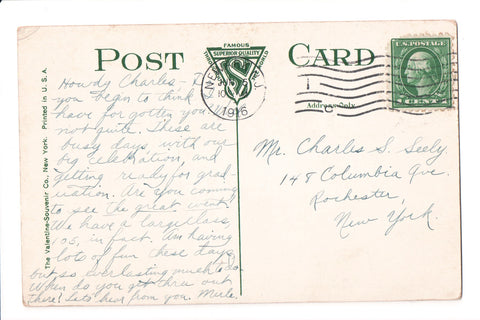 POST CARD
FAMOUS
SUPERIOR QUALITY
THROUGHOUT THE WORLD
VS
U.S. POSTAGE
1 CENT 1
N.J.
1916
Address Only
Printed in U. S. A.
The Valentine-Souvenir Co., New York.
Howdy Charles-
you begin to think
have for gotten you
not quite. These are
busy days, with our
big celebration, and
getting ready for grad-
uation. Are you coming
to see the great went?
We have a large class
105, in fact. Am having
lots of fun these days
but so everlasting much to do.
When do you get thru out
there? Let's hear from you. Merle.
Mr. Charles S. Seely
148 Columbia Ave.
Rochester,
New York.